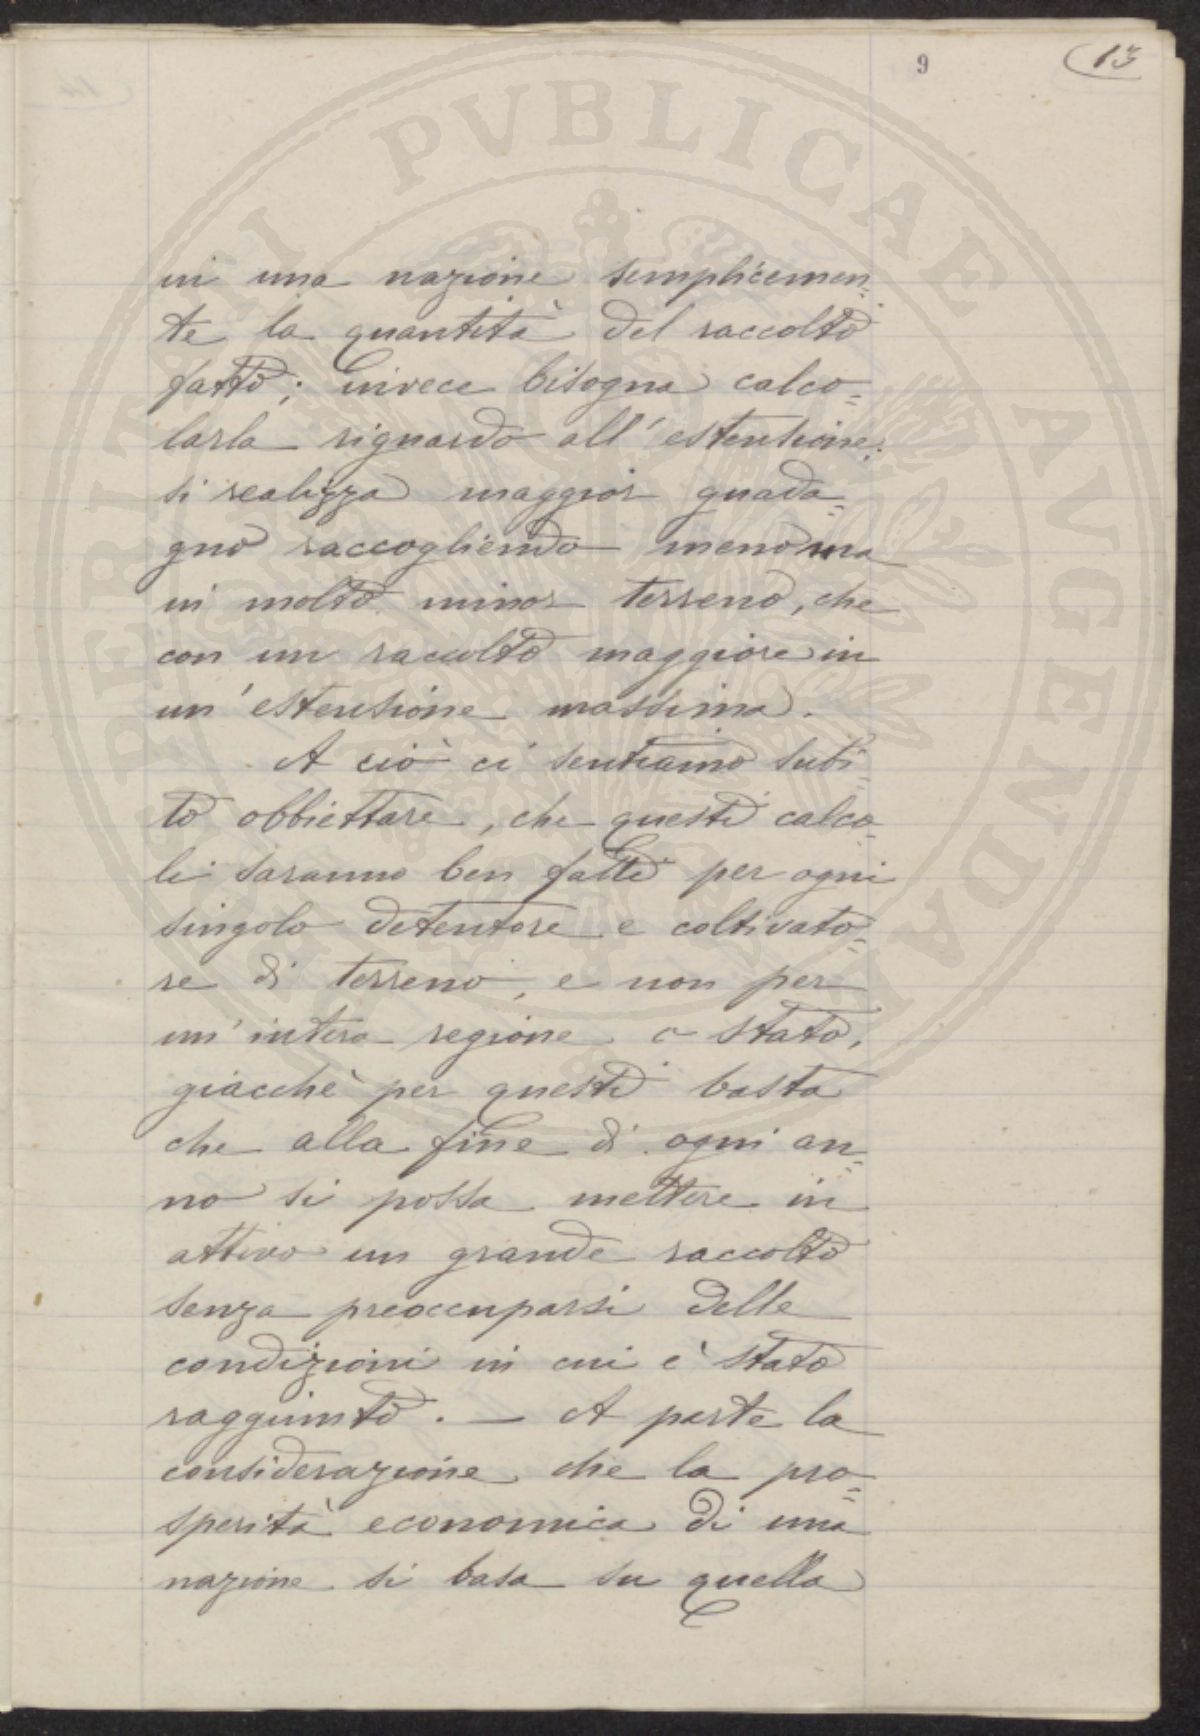 9
13
in una nazione semplicemen=
te la quantità del raccolto
fatto; invece bisogna calco=
larla riguardo all'estensione;
si realizza maggior guada=
gno raccogliendo meno ma
in molto minor terreno, che
con un raccolto maggiore in
un'estensione massima.
A ciò ci sentiamo subi=
to obbiettare, che questi calco=
li saranno ben fatti per ogni
singolo detentore e coltivato=
re di terreno, e non per
un'intera regione o stato,
giacchè per questi basta
che alla fine di ogni an=
no si possa mettere in
attivo un grande raccolto
senza preoccuparsi delle
condizioni in cui è stato
raggiunto. — A parte la
considerazione che la pro=
sperità economica di una
nazione si basa su quella
PERITATI PVBLICAE AVGENDAE